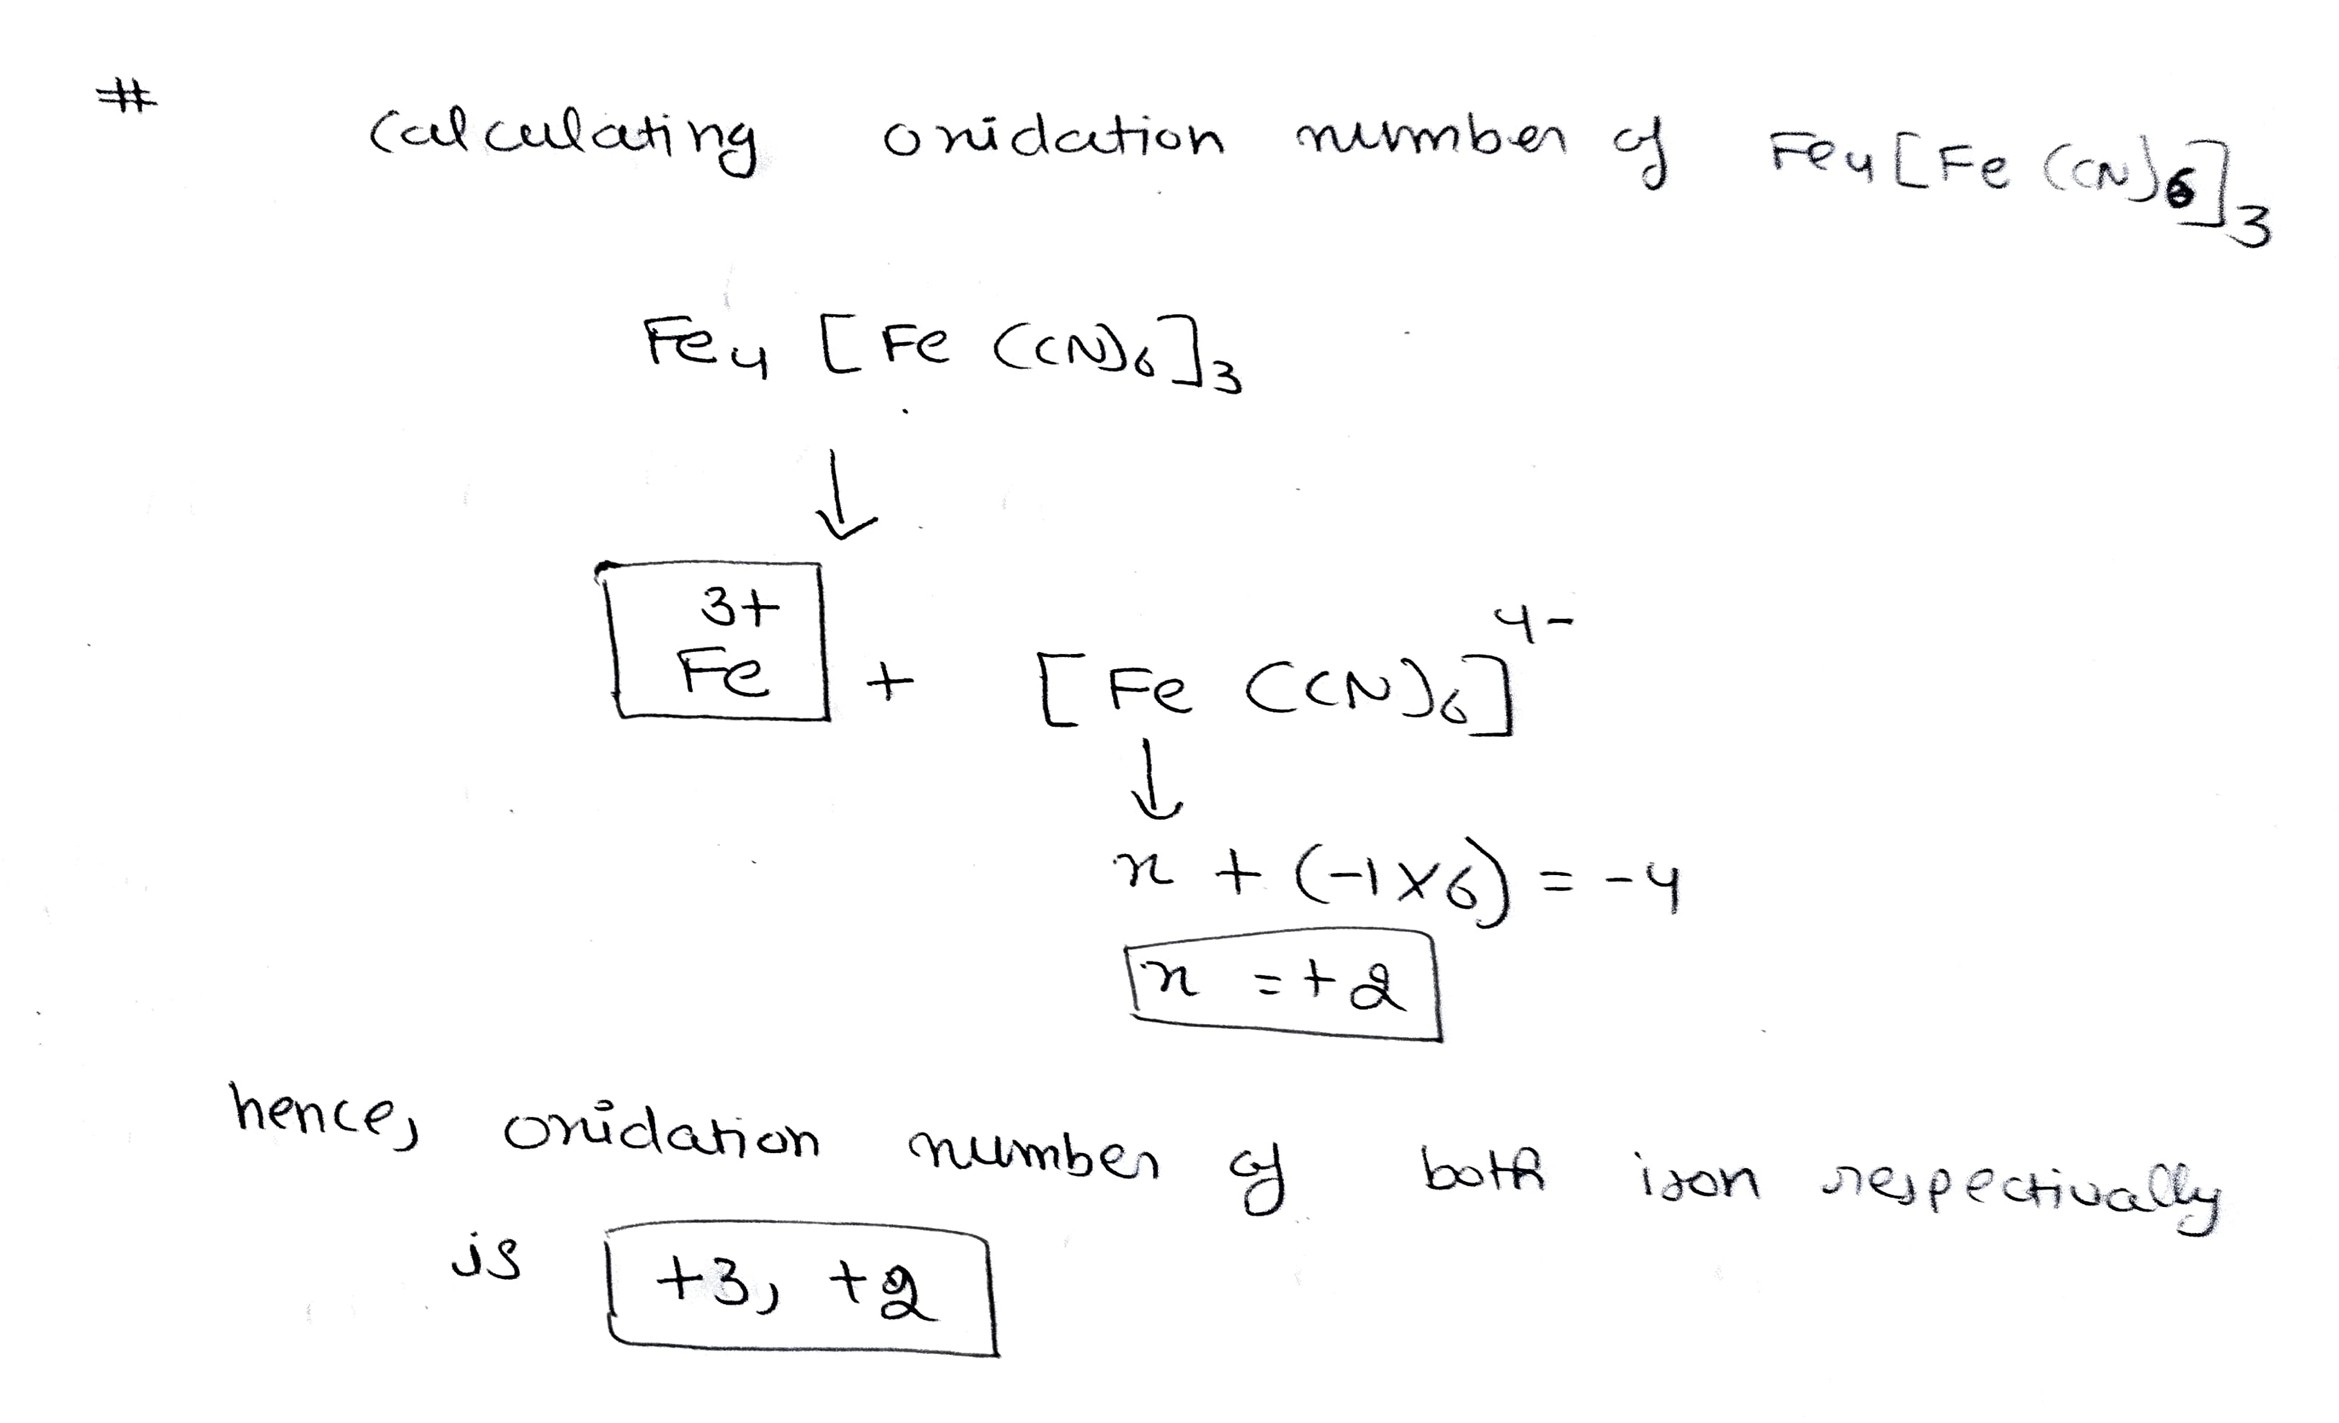 # calculating oxidation number of Fe4[Fe(CN)6]3
Fe4 [Fe (CN)6]3
↓
3+
Fe + [Fe (CN)6]4-
↓
x + (-1×6) = -4
x = +2
hence, oxidation number of both iron respectivally
is +3, +2